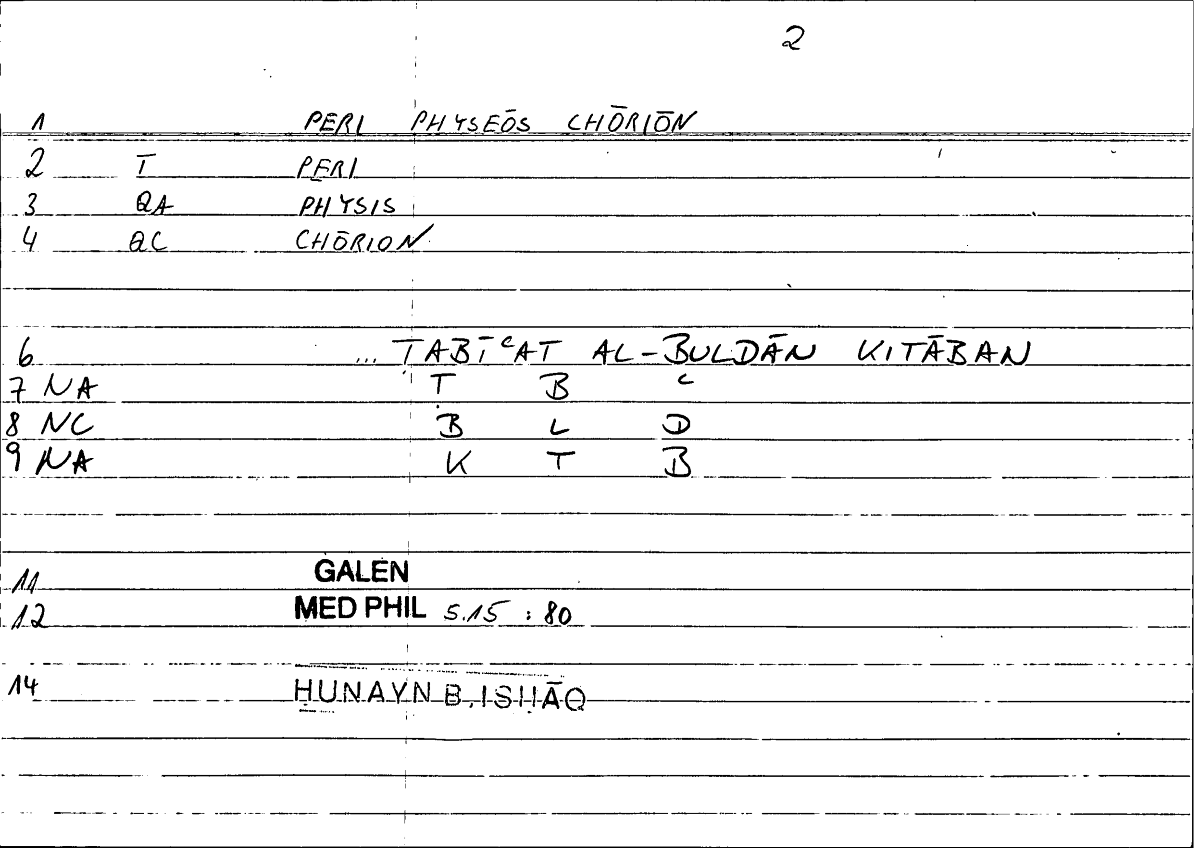 2
1 PERI PHYSEŌS CHŌRIŌN
2 T PERI
3 QA PHYSIS
4 QC CHŌRION
6 ... ṬABĪʿAT AL-BULDĀN KITĀBAN
7 NA Ṭ B ʿ
8 NC B L D
9 NA K T B
11 GALEN
12 MED PHIL 5.15 : 80
14 ḤUNAYN B. ISḤĀQ